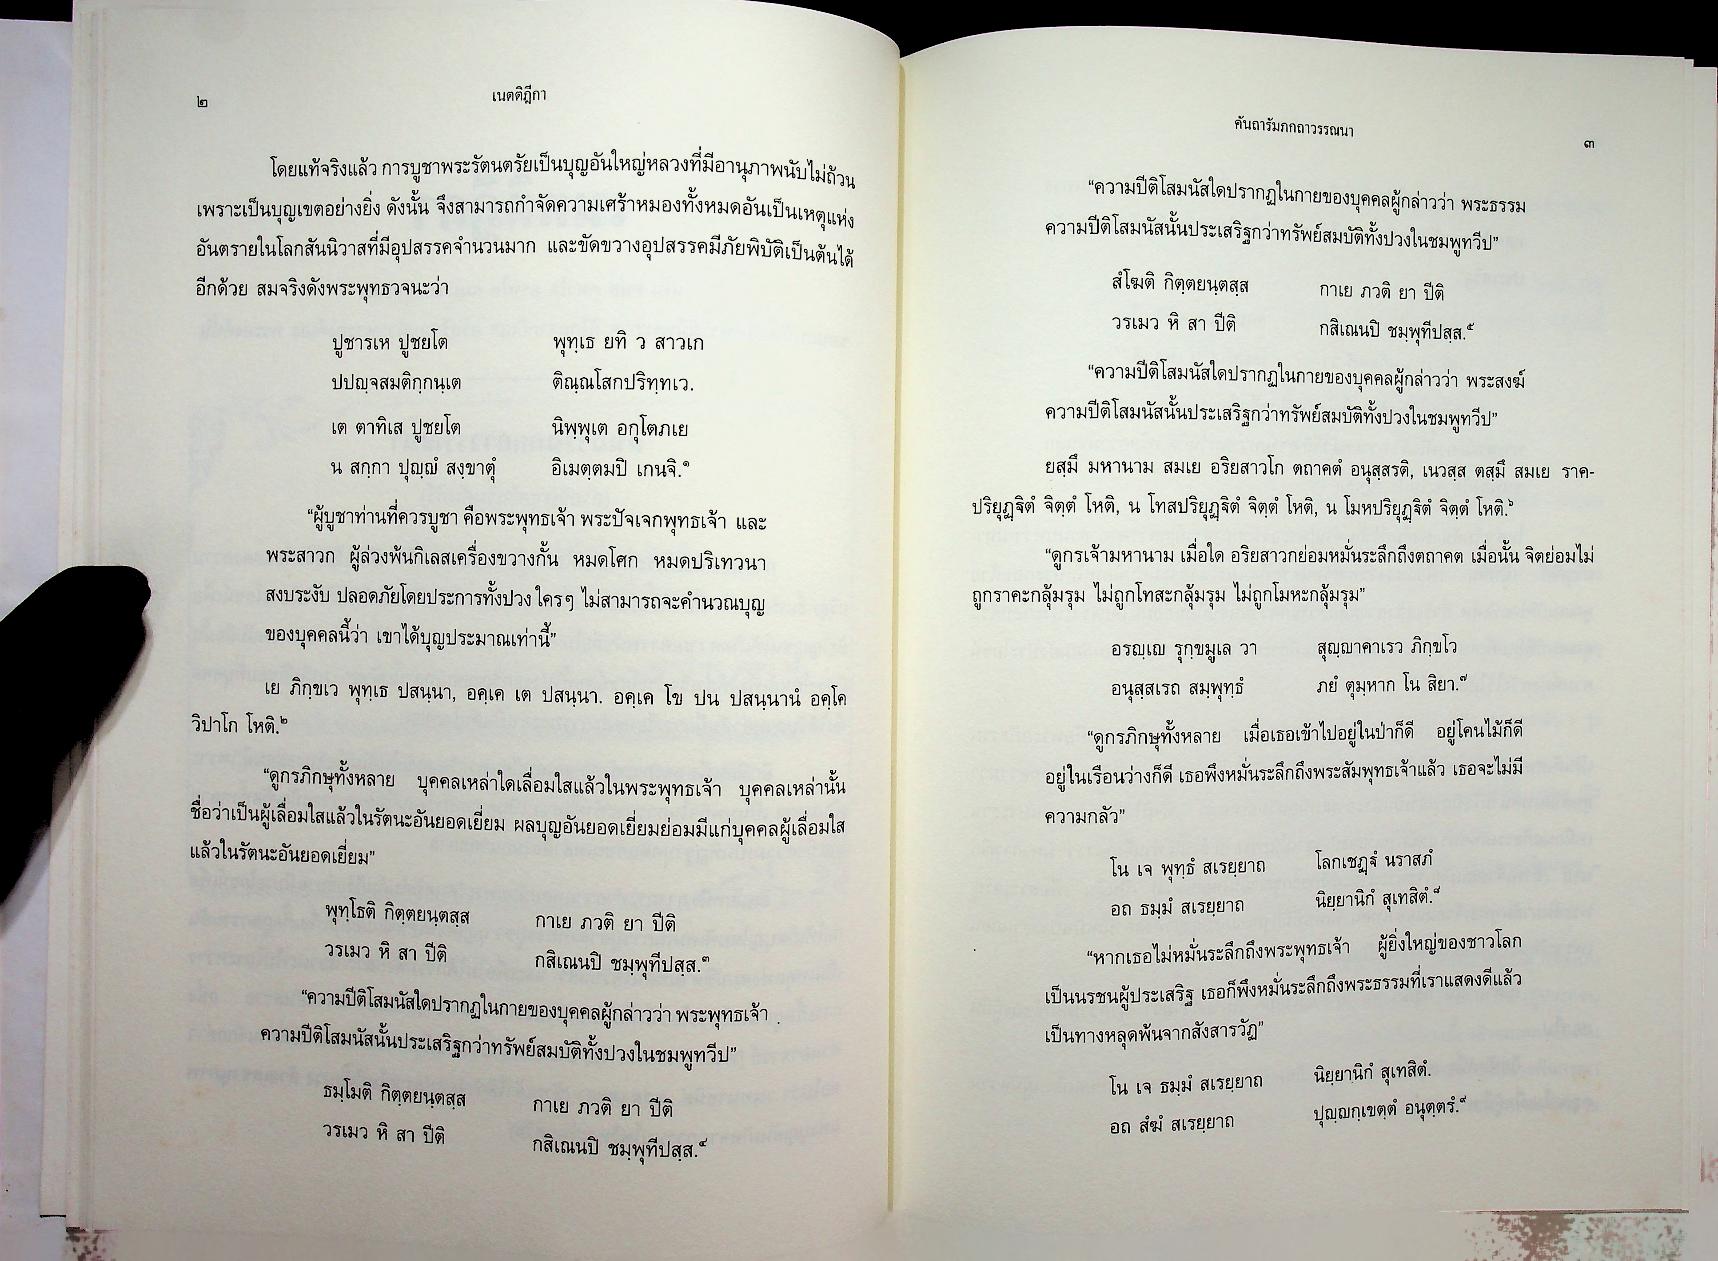 ๒
เนตติฎีกา
โดยแท้จริงแล้ว การบูชาพระรัตนตรัยเป็นบุญอันใหญ่หลวงที่มีอานุภาพนับไม่ถ้วน
เพราะเป็นบุญเขตอย่างยิ่ง ดังนั้น จึงสามารถกำจัดความเศร้าหมองทั้งหมดอันเป็นเหตุแห่ง
อันตรายในโลกสันนิวาสที่มีอุปสรรคจำนวนมาก และขัดขวางอุปสรรคมีภัยพิบัติเป็นต้นได้
อีกด้วย สมจริงดังพระพุทธวจนะว่า
ปูชารเห ปูชยโต พุทฺเธ ยทิ ว สาวเก
ปปญฺจสมติกฺกนฺเต ติณฺณโสกปริทฺทเว.
เต ตาทิเส ปูชยโต นิพฺพุเต อกุโตภเย
น สกฺกา ปุญฺญํ สงฺขาตุํ อิเมตฺตมปิ เกนจิ.๑
“ผู้บูชาท่านที่ควรบูชา คือพระพุทธเจ้า พระปัจเจกพุทธเจ้า และ
พระสาวก ผู้ล่วงพ้นกิเลสเครื่องขวางกั้น หมดโศก หมดปริเทวนา
สงบระงับ ปลอดภัยโดยประการทั้งปวง ใครๆ ไม่สามารถจะคำนวณบุญ
ของบุคคลนี้ว่า เขาได้บุญประมาณเท่านี้”
เย ภิกฺขเว พุทฺเธ ปสนฺนา, อคฺเค เต ปสนฺนา. อคฺเค โข ปน ปสนฺนานํ อคฺโค
วิปาโก โหติ.๒
“ดูกรภิกษุทั้งหลาย บุคคลเหล่าใดเลื่อมใสแล้วในพระพุทธเจ้า บุคคลเหล่านั้น
ชื่อว่าเป็นผู้เลื่อมใสแล้วในรัตนะอันยอดเยี่ยม ผลบุญอันยอดเยี่ยมย่อมมีแก่บุคคลผู้เลื่อมใส
แล้วในรัตนะอันยอดเยี่ยม”
พุทฺโธติ กิตฺตยนฺตสฺส กาเย ภวติ ยา ปีติ
วรเมว หิ สา ปีติ กสิเณนปิ ชมฺพุทีปสฺส.๓
“ความปีติโสมนัสใดปรากฏในกายของบุคคลผู้กล่าวว่า พระพุทธเจ้า
ความปีติโสมนัสนั้นประเสริฐกว่าทรัพย์สมบัติทั้งปวงในชมพูทวีป”
ธมฺโมติ กิตฺตยนฺตสฺส กาเย ภวติ ยา ปีติ
วรเมว หิ สา ปีติ กสิเณนปิ ชมฺพุทีปสฺส.๔
คันถารัมภกถาวรรณนา
๓
“ความปีติโสมนัสใดปรากฏในกายของบุคคลผู้กล่าวว่า พระธรรม
ความปีติโสมนัสนั้นประเสริฐกว่าทรัพย์สมบัติทั้งปวงในชมพูทวีป”
สํโฆติ กิตฺตยนฺตสฺส กาเย ภวติ ยา ปีติ
วรเมว หิ สา ปีติ กสิเณนปิ ชมฺพุทีปสฺส.๕
“ความปีติโสมนัสใดปรากฏในกายของบุคคลผู้กล่าวว่า พระสงฆ์
ความปีติโสมนัสนั้นประเสริฐกว่าทรัพย์สมบัติทั้งปวงในชมพูทวีป”
ยสฺมึ มหานาม สมเย อริยสาวโก ตถาคตํ อนุสฺสรติ, เนวสฺส ตสฺมึ สมเย ราค-
ปริยุฏฺฐิตํ จิตฺตํ โหติ, น โทสปริยุฏฺฐิตํ จิตฺตํ โหติ, น โมหปริยุฏฺฐิตํ จิตฺตํ โหติ.๖
“ดูกรเจ้ามหานาม เมื่อใด อริยสาวกย่อมหมั่นระลึกถึงตถาคต เมื่อนั้น จิตย่อมไม่
ถูกราคะกลุ้มรุม ไม่ถูกโทสะกลุ้มรุม ไม่ถูกโมหะกลุ้มรุม”
อรญฺเญ รุกฺขมูเล วา สุญฺญาคาเรว ภิกฺขโว
อนุสฺสเรถ สมฺพุทฺธํ ภยํ ตุมฺหาก โน สิยา.๗
“ดูกรภิกษุทั้งหลาย เมื่อเธอเข้าไปอยู่ในป่าก็ดี อยู่โคนไม้ก็ดี
อยู่ในเรือนว่างก็ดี เธอพึงหมั่นระลึกถึงพระสัมพุทธเจ้าแล้ว เธอจะไม่มี
ความกลัว”
โน เจ พุทฺธํ สเรยฺยาถ โลกเชฏฺฐํ นราสภํ
อถ ธมฺมํ สเรยฺยาถ นิยฺยานิกํ สุเทสิตํ.๘
“หากเธอไม่หมั่นระลึกถึงพระพุทธเจ้า ผู้ยิ่งใหญ่ของชาวโลก
เป็นนรชนผู้ประเสริฐ เธอก็พึงหมั่นระลึกถึงพระธรรมที่เราแสดงดีแล้ว
เป็นทางหลุดพ้นจากสังสารวัฏ”
โน เจ ธมฺมํ สเรยฺยาถ นิยฺยานิกํ สุเทสิตํ.
อถ สํฆํ สเรยฺยาถ ปุญฺญกฺเขตฺตํ อนุตฺตรํ.๙